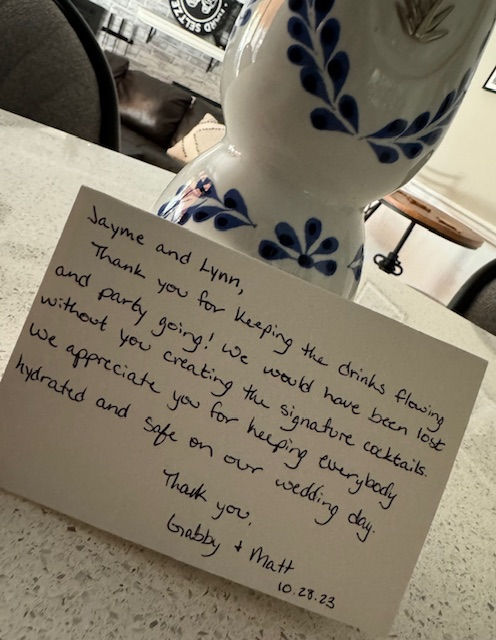 HARD SELTZER
Jayme and Lynn,
Thank you for keeping the drinks flowing
and party going! We would have been lost
without you creating the signature cocktails.
We appreciate you for keeping everybody
hydrated and safe on our wedding day.
Thank you,
Gabby + Matt
10.28.23